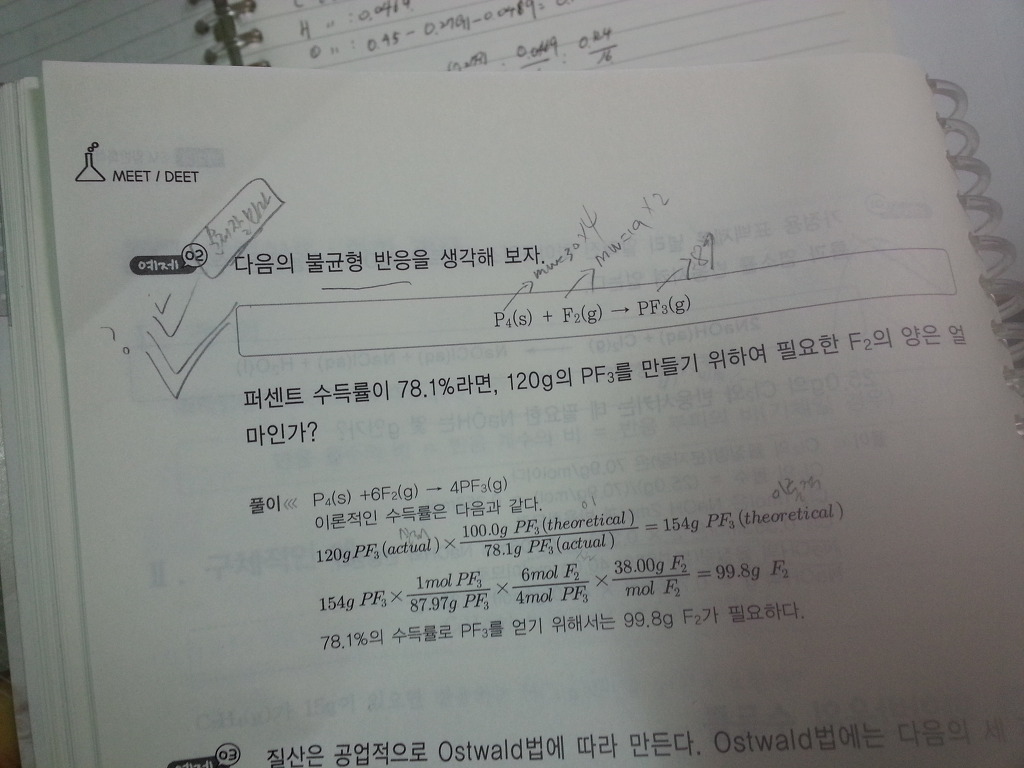 H 〃 : 0.0469
0 〃 : 0.45 - 0.2791 - 0.0489 = 0.
0.0469 0.24/16
MEET / DEET
예제 02 다음의 불균형 반응을 생각해 보자.
mw=30×4 mw=19×2
P₄(s) + F₂(g) → PF₃(g)
퍼센트 수득률이 78.1%라면, 120g의 PF₃를 만들기 위하여 필요한 F₂의 양은 얼
마인가?
풀이 ⋘ P₄(s) +6F₂(g) → 4PF₃(g)
이론적인 수득률은 다음과 같다.
120gPF₃(actual) × 100.0g PF₃(theoretical)/78.1g PF₃(actual) = 154g PF₃(theoretical)
154g PF₃ × 1mol PF₃/87.97g PF₃ × 6mol F₂/4mol PF₃ × 38.00g F₂/mol F₂ = 99.8g F₂
78.1%의 수득률로 PF₃를 얻기 위해서는 99.8g F₂가 필요하다.
예제 03 질산은 공업적으로 Ostwald법에 따라 만든다. Ostwald법에는 다음의 세